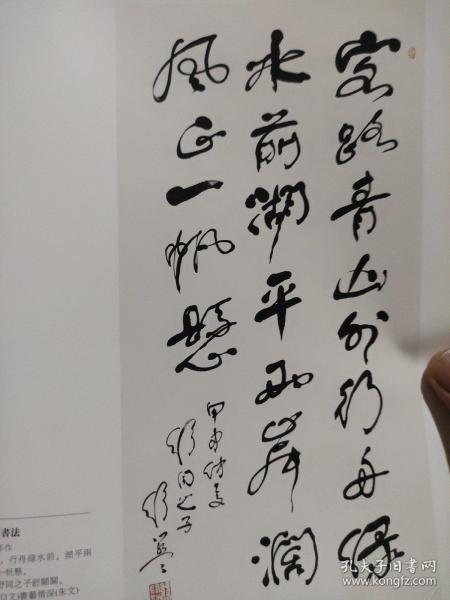 客路青山外行舟绿
水前潮平两岸阔
风正一帆悬
甲申仲夏
舒同之子
舒
書法
行舟綠水前。潮平兩
一帆懸。
舒同之子舒關關
白文)書藝情深(朱文)
孔夫子旧书网